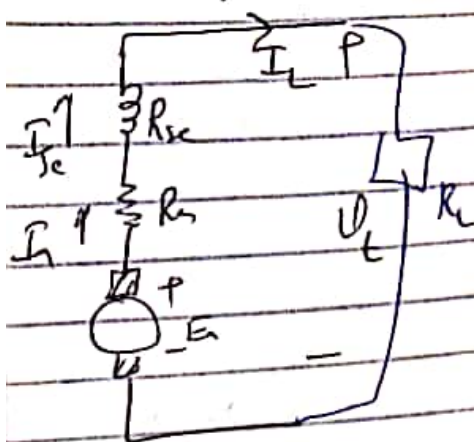 I_L P
I_se R_se
I_a R_a
V_t R_L
+
- E_a
-